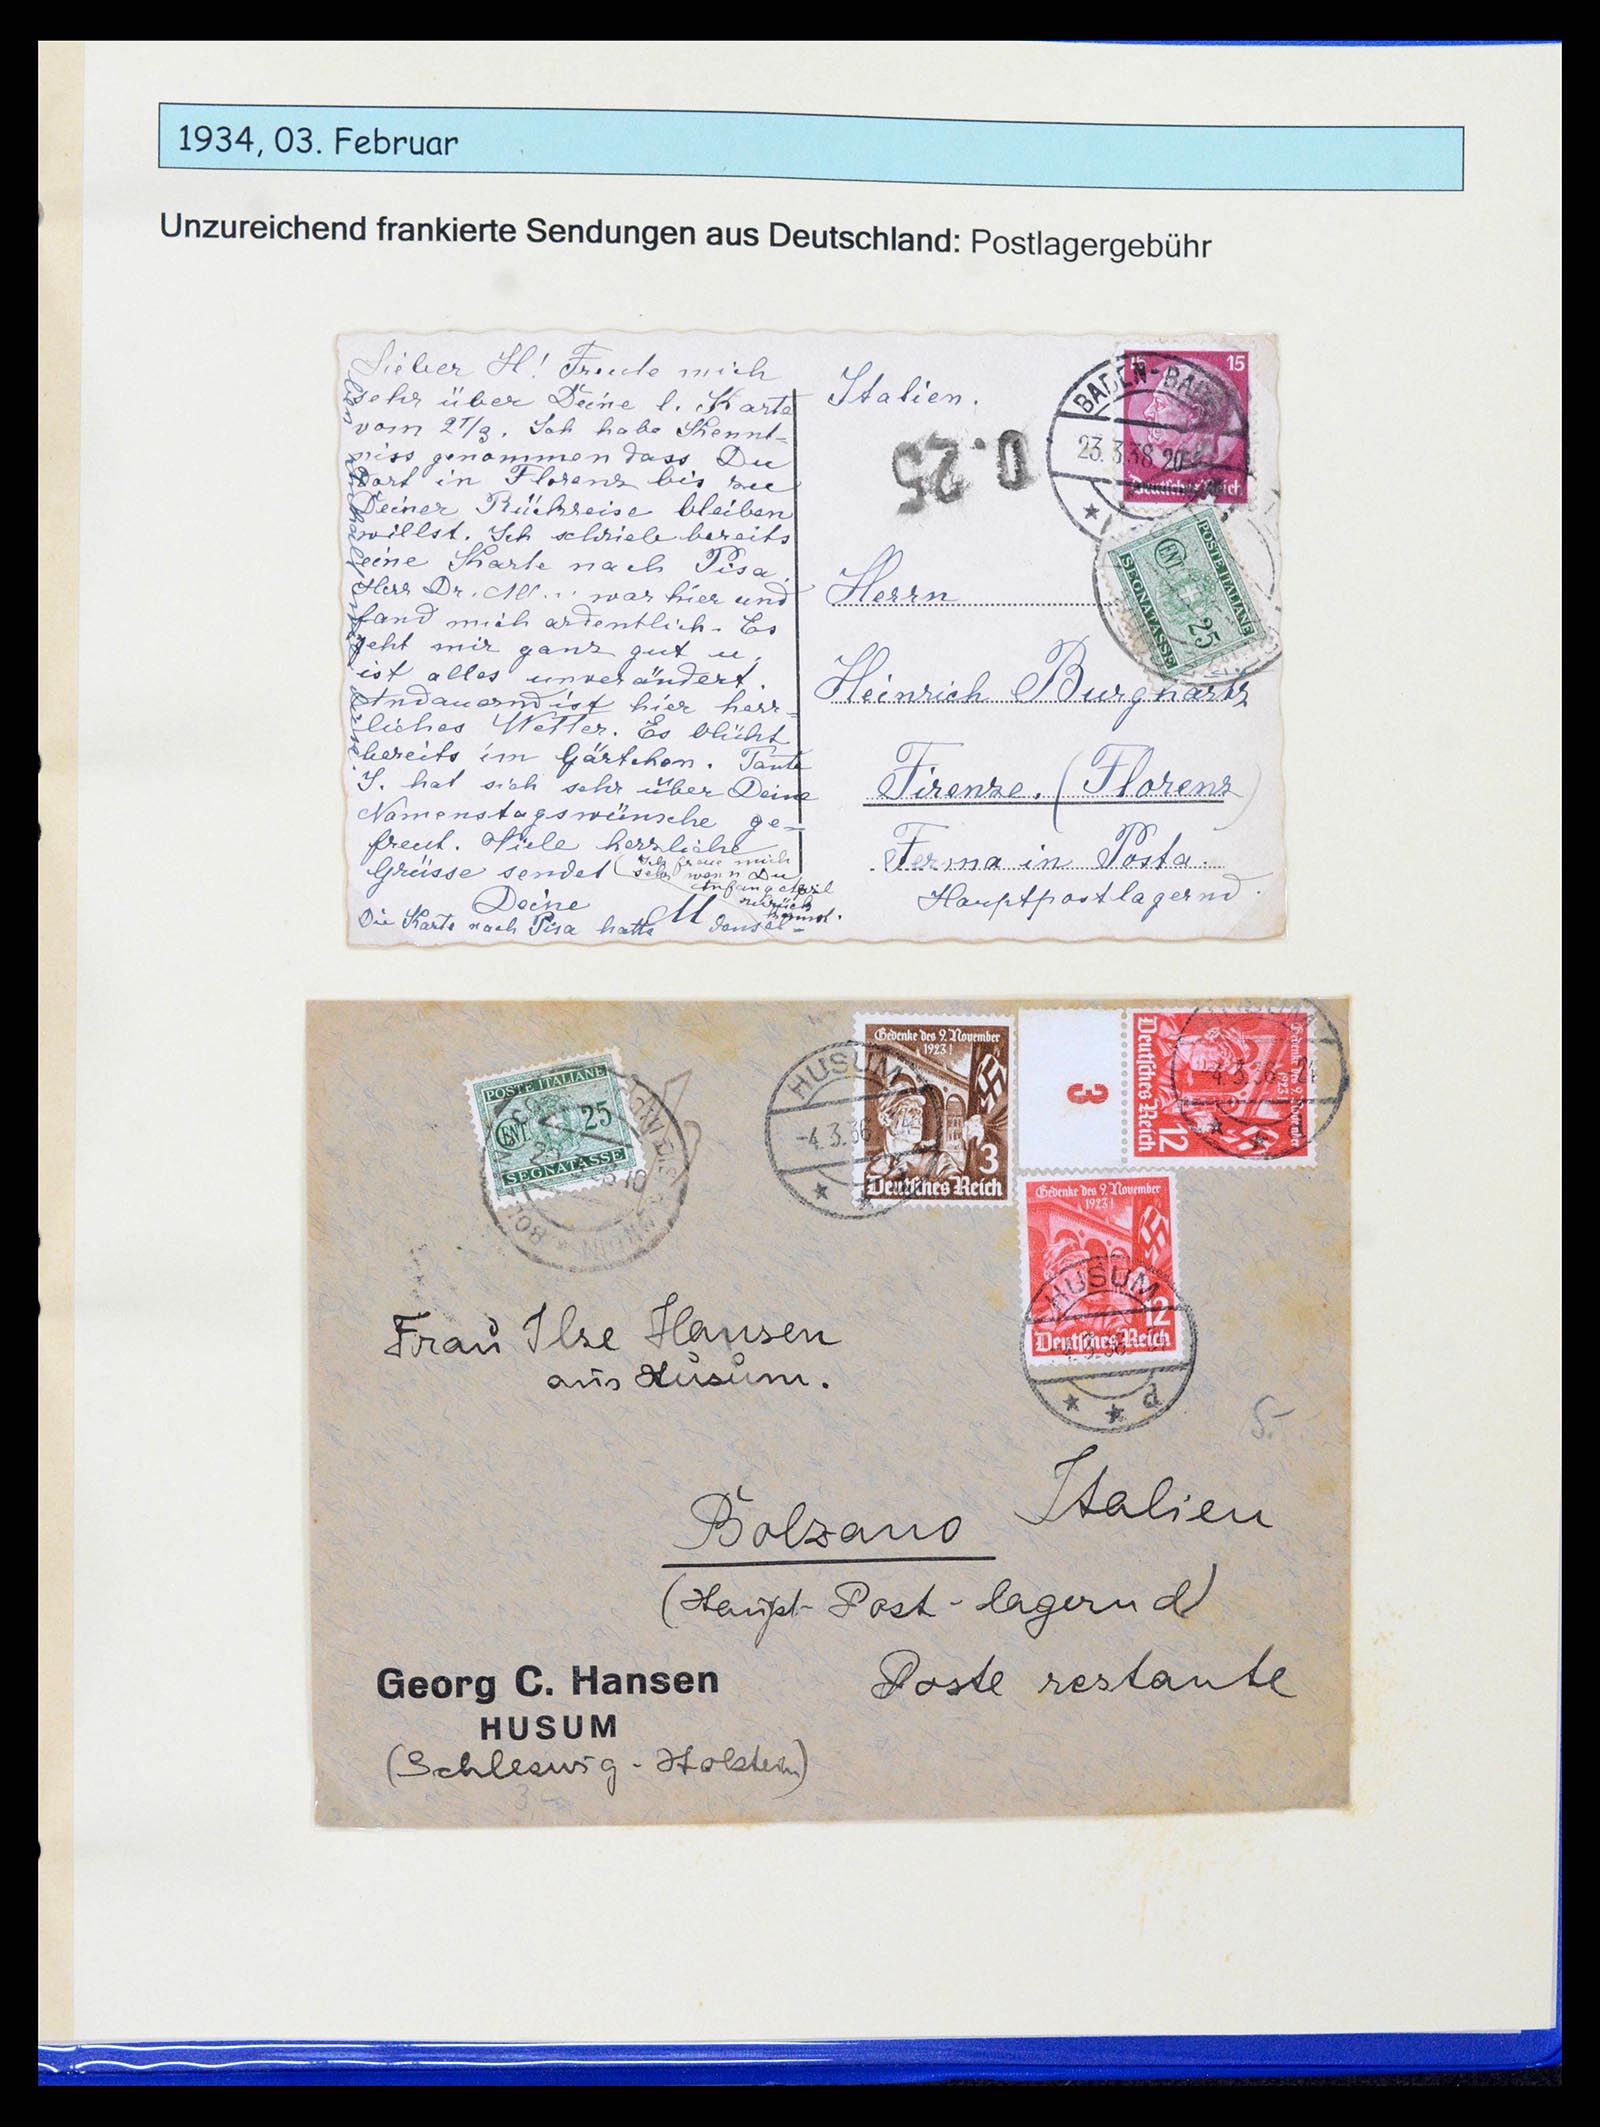 1934, 03. Februar
Unzureichend frankierte Sendungen aus Deutschland: Postlagergebühr
Lieber H! Freute mich
sehr über Deine l. Karte
vom 21/3. Ich habe Kennt-
niss genommen dass Du
dort in Florenz bis zu
Deiner Rückreise bleiben
willst. Ich schrieb bereits
eine Karte nach Pisa.
Herr Dr. M... war hier und
fand mich ordentlich. Es
geht mir ganz gut u.
ist alles unverändert.
Andauernd ist hier herr-
liches Wetter. Es blüht
bereits im Gärtchen. Tante
J. hat sich sehr über Deine
Namenstagswünsche ge-
freut. Viele herzliche
Grüsse sendet
Deine M
(Ich freue mich
sehr wenn Du
Anfang April
zurück
kommst.
Die Karte nach Pisa hatte densel-
ben
Italien.
0.25
15 15
Deutsches Reich
BADEN-BADEN
23.3.38.20
POSTE ITALIANE
CENT. 25
SEGNATASSE
Herrn
Heinrich Burghartz
Firenze. (Florenz)
Ferma in Posta.
Hauptpostlagernd.
POSTE ITALIANE
CENT. 25
SEGNATASSE
HUSUM
-4.3.36
Gedenke des 9. November
1923!
3
Deutsches Reich
3
Gedenke des 9. November
1923!
12
Deutsches Reich
HUSUM
-4.3.36
Gedenke des 9. November
1923!
12
Deutsches Reich
HUSUM
-4.3.36
d
Frau Ilse Hansen
aus Husum.
5.-
Italien
Bolzano
(Haupt-Post-lagernd)
Poste restante
Georg C. Hansen
HUSUM
(Schleswig-Holstein)
3.-